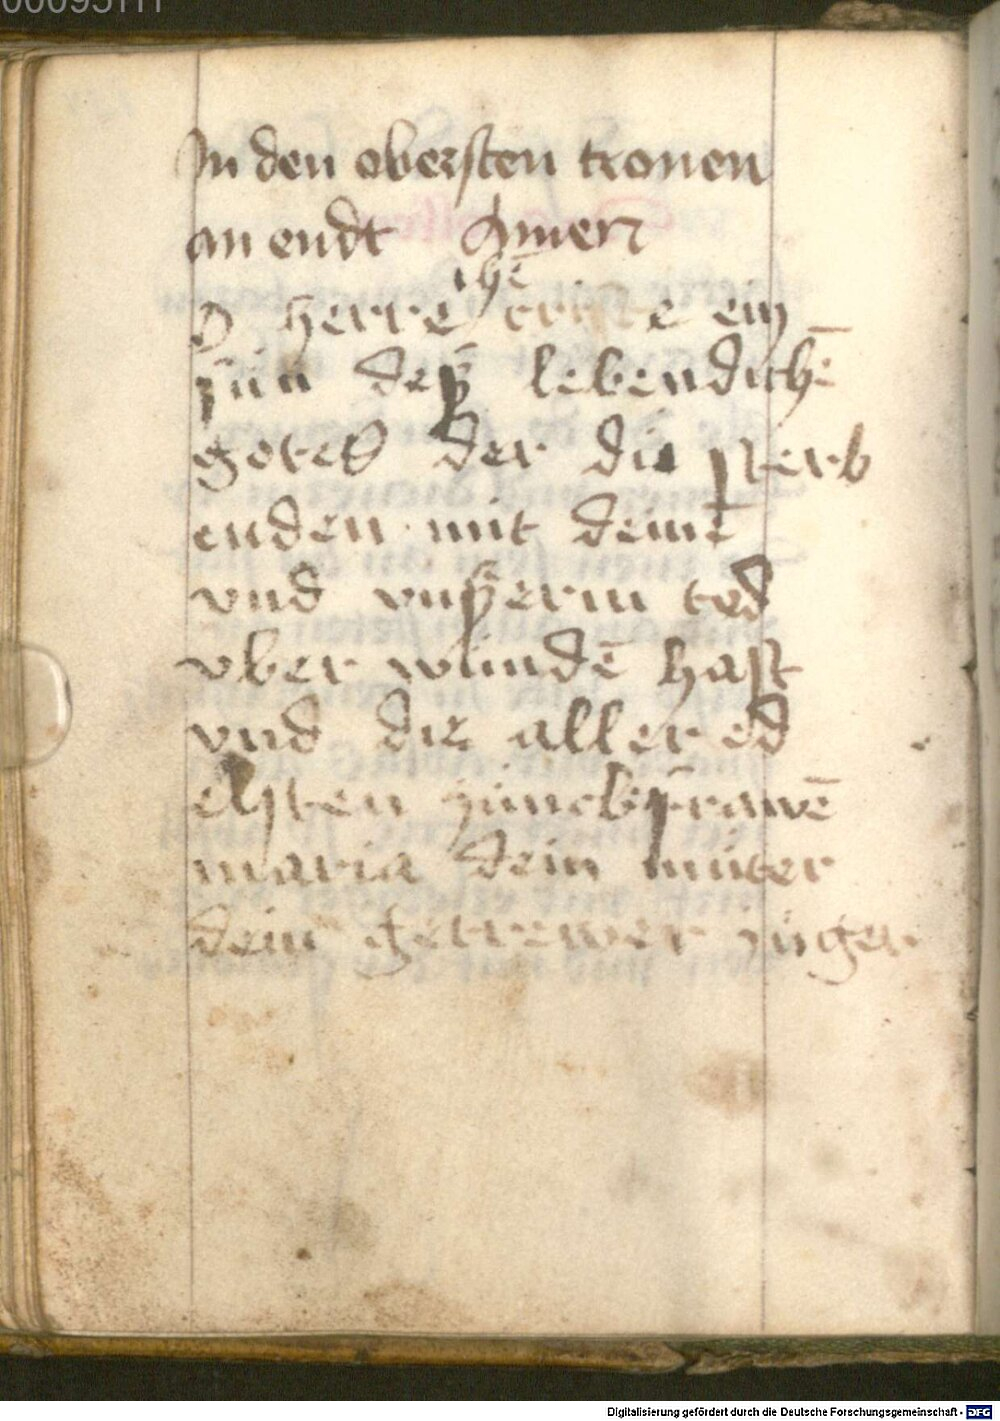 00095111
In den obersten tronen
an endt Amen
ihē
O herre criste ein
sun deß lebendichē
gotes der die sterb
enden mit deinē
vnd vnserm tod
vber wundē hast
vnd die aller ed
elsten junckfrawē
maria dein muter
dein getrewer junger
Digitalisierung gefördert durch die Deutsche Forschungsgemeinschaft - DFG